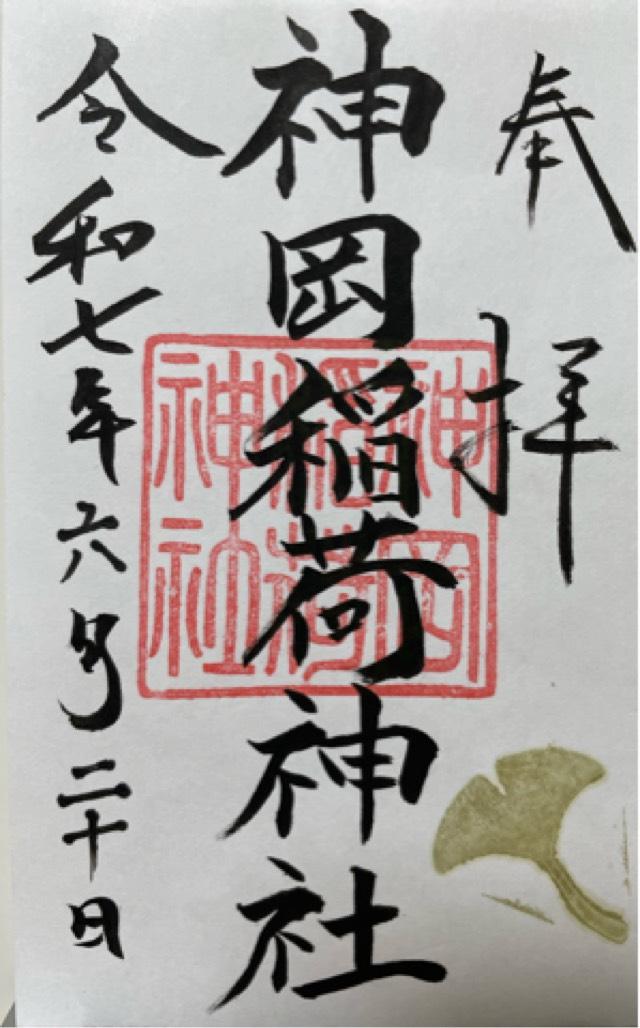 奉拝
神岡稲荷神社
神岡稲荷神社
令和七年六月二十日